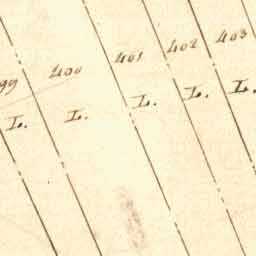 99 400 401 402 403
L. L. L. L. L.